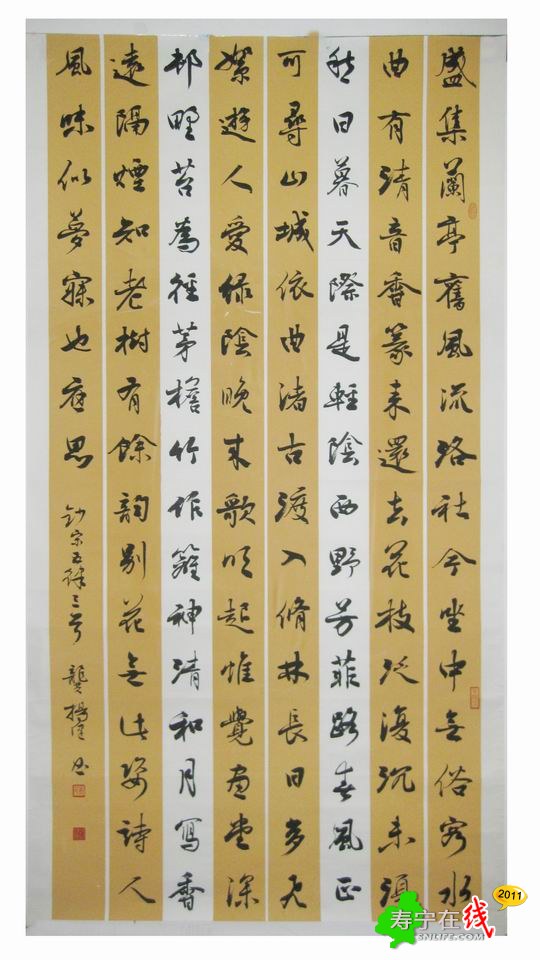 盛集蘭亭舊風流洛社今坐中無俗客水
曲有清音香篆来還去花枝泛復沉未須
愁日暮天際是輕陰西野芳菲路春風正
可尋山城依曲渚古渡入脩林長日多飛
絮遊人愛绿陰晚来歌吹起惟覺畫堂深
邨野苔為徑茅檐竹作籬神清和月寫香
遠隔煙知老樹有餘韵别花無此姿詩人
風味似夢寐也應思
鈔宋五律三首 龔楊 书
2011
寿宁在线
SNLIFE.COM